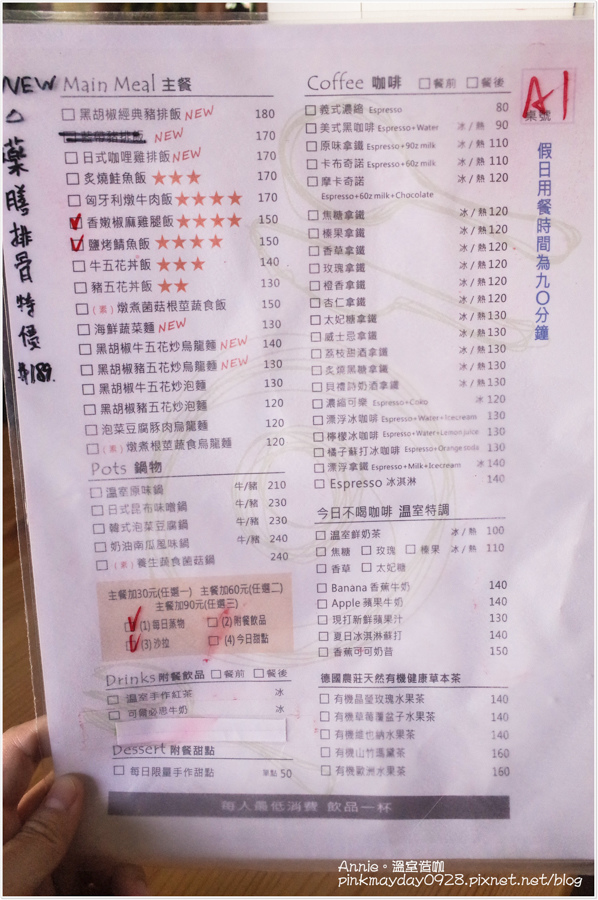 NEW
△
藥膳排骨特優
$189.
Main Meal 主餐
□ 黑胡椒經典豬排飯 NEW 180
NEW 170
□ 日式咖哩雞排飯 NEW 170
□ 炙燒鮭魚飯 ★★★ 170
□ 匈牙利燉牛肉飯 ★★★★ 170
□ 香嫩椒麻雞腿飯 ★★★★ 150
□ 鹽烤鯖魚飯 ★★★★ 150
□ 牛五花丼飯 ★★★ 140
□ 豬五花丼飯 ★★ 130
□ (素) 燉煮菌菇根莖蔬食飯 150
□ 海鮮蔬菜麵 NEW 130
□ 黑胡椒牛五花炒烏龍麵 NEW 140
□ 黑胡椒豬五花炒烏龍麵 NEW 130
□ 黑胡椒牛五花炒泡麵 130
□ 黑胡椒豬五花炒泡麵 120
□ 泡菜豆腐豚肉烏龍麵 120
□ (素) 燉煮根莖蔬食烏龍麵 120
Pots 鍋物
□ 溫室原味鍋 牛/豬 210
□ 日式昆布味噌鍋 牛/豬 230
□ 韓式泡菜豆腐鍋 牛/豬 230
□ 奶油南瓜風味鍋 牛/豬 240
□ (素) 養生蔬食菌菇鍋 240
主餐加30元(任選一) 主餐加60元(任選二)
主餐加90元(任選三)
□ (1) 每日蒸物 □ (2) 附餐飲品
□ (3) 沙拉 □ (4) 今日甜點
Drinks 附餐飲品 □ 餐前 □ 餐後
□ 溫室手作紅茶 冰
□ 可爾必思牛奶 冰
Dessert 附餐甜點
□ 每日限量手作甜點 單點 50
Coffee 咖啡 □ 餐前 □ 餐後
□ 義式濃縮 Espresso 80
□ 美式黑咖啡 Espresso+Water 冰 / 熱 90
□ 原味拿鐵 Espresso+90z milk 冰 / 熱 110
□ 卡布奇諾 Espresso+60z milk 冰 / 熱 110
□ 摩卡奇諾 冰 / 熱 120
Espresso+60z milk+Chocolate
□ 焦糖拿鐵 冰 / 熱 120
□ 榛果拿鐵 冰 / 熱 120
□ 香草拿鐵 冰 / 熱 120
□ 玫瑰拿鐵 冰 / 熱 120
□ 橙香拿鐵 冰 / 熱 120
□ 杏仁拿鐵 冰 / 熱 120
□ 太妃糖拿鐵 冰 / 熱 130
□ 威士忌拿鐵 冰 / 熱 130
□ 荔枝甜酒拿鐵 冰 / 熱 130
□ 炙燒黑糖拿鐵 冰 / 熱 130
□ 貝禮詩奶酒拿鐵 冰 / 熱 130
□ 濃縮可樂 Espresso+Coko 冰 120
□ 漂浮冰咖啡 Espresso+Water+Icecream 130
□ 檸檬冰咖啡 Espresso+Water+Lemon juice 130
□ 橘子蘇打冰咖啡 Espresso+Orange soda 130
□ 漂浮拿鐵 Espresso+Milk+Icecream 冰 140
□ Espresso 冰淇淋 140
今日不喝咖啡 溫室特調
□ 溫室鮮奶茶 冰 / 熱 100
□ 焦糖 □ 玫瑰 □ 榛果 冰 / 熱 110
□ 香草 □ 太妃糖
□ Banana 香蕉牛奶 140
□ Apple 蘋果牛奶 140
□ 現打新鮮蘋果汁 130
□ 夏日冰淇淋蘇打 140
□ 香蕉可可奶昔 150
德國農莊天然有機健康草本茶
□ 有機晶瑩玫瑰水果茶 140
□ 有機草莓覆盆子水果茶 140
□ 有機維也納水果茶 140
□ 有機山竹瑪黛茶 160
□ 有機歐洲水果茶 160
每人最低消費 飲品一杯
A1
桌號
假日用餐時間為九〇分鐘
Annie。溫室蓓咖
pinkmayday0928.pixnet.net/blog